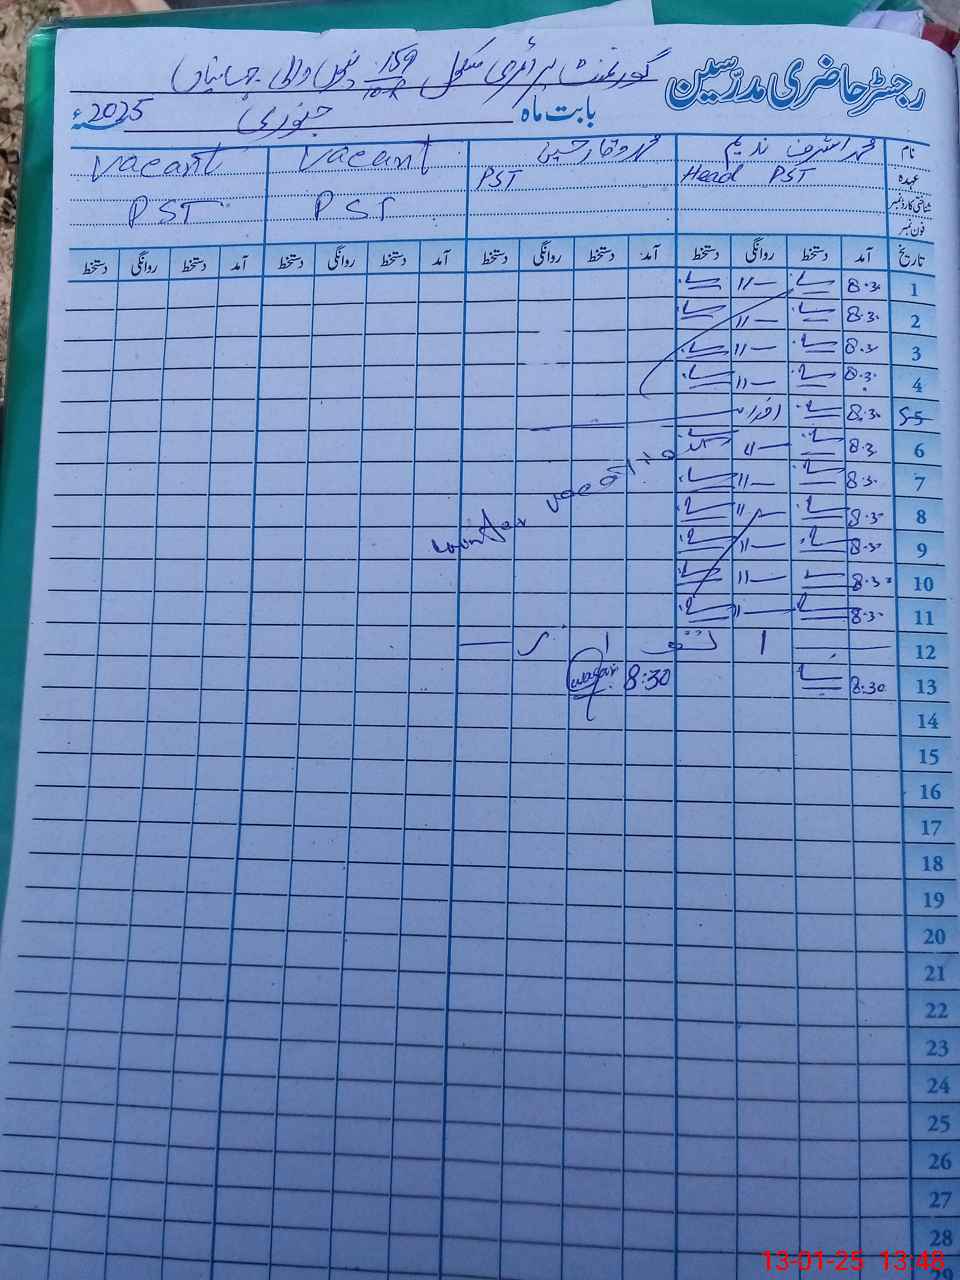 رجسٹر حاضری مدرّسین
گورنمنٹ پرائمری سکول 159/10-R جہانیاں
بابت ماہ جنوری 2025ء
نام محمد اشرف ندیم محمد وقار حسین Vacant Vacant
عہدہ Head PST PST PST PST
شناختی کارڈ نمبر
فون نمبر
تاریخ آمد دستخط روانگی دستخط آمد دستخط روانگی دستخط آمد دستخط روانگی دستخط آمد دستخط روانگی دستخط
1 8.30 11
2 8.30 11
3 8.30 11
4 8.30 11
5 8.30 اتوار
6 8.30 11
7 8.30 11
winter vacation
8 8.30 11
9 8.30 11
10 8.30 11
11 8.30 11
12
13 8:30 8:30 waqar
14
15
16
17
18
19
20
21
22
23
24
25
26
27
28
29
13-01-25 13:48